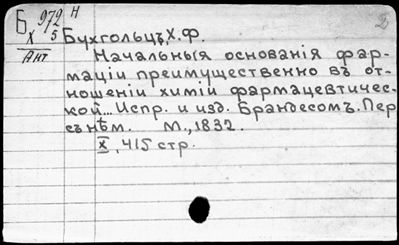 Б 972 Н
X 5
Ант
Бухгольцъ, Х. Ф.
Начальныя основанія фар-
маціи преимущественно въ от-
ношеніи химіи фармацевтичес-
кой... Испр. и изд. Брандесомъ. Пер
съ нѣм. М., 1832.
X, 415 стр.